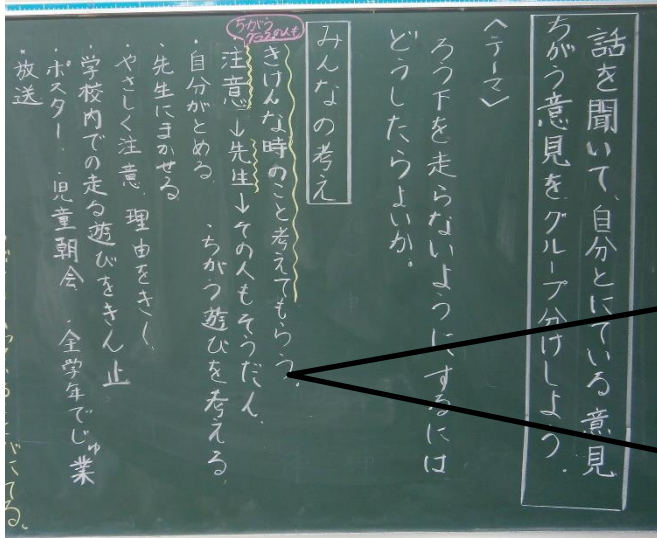 話を聞いて、自分とにている意見
ちがう意見をグループ分けしよう。
〈テーマ〉
ろう下を走らないようにするには
どうしたらよいか。
みんなの考え
ちがう
クラスの人も
・きけんな時のこと考えてもらう。
注意→先生→その人もそうだん。
・自分がとめる ・ちがう遊びを考える
・先生にまかせる
・やさしく注意、理由をきく、
・学校内での走る遊びをきん止
・ポスター、・児童朝会、・全学年でじゅ業
・放送